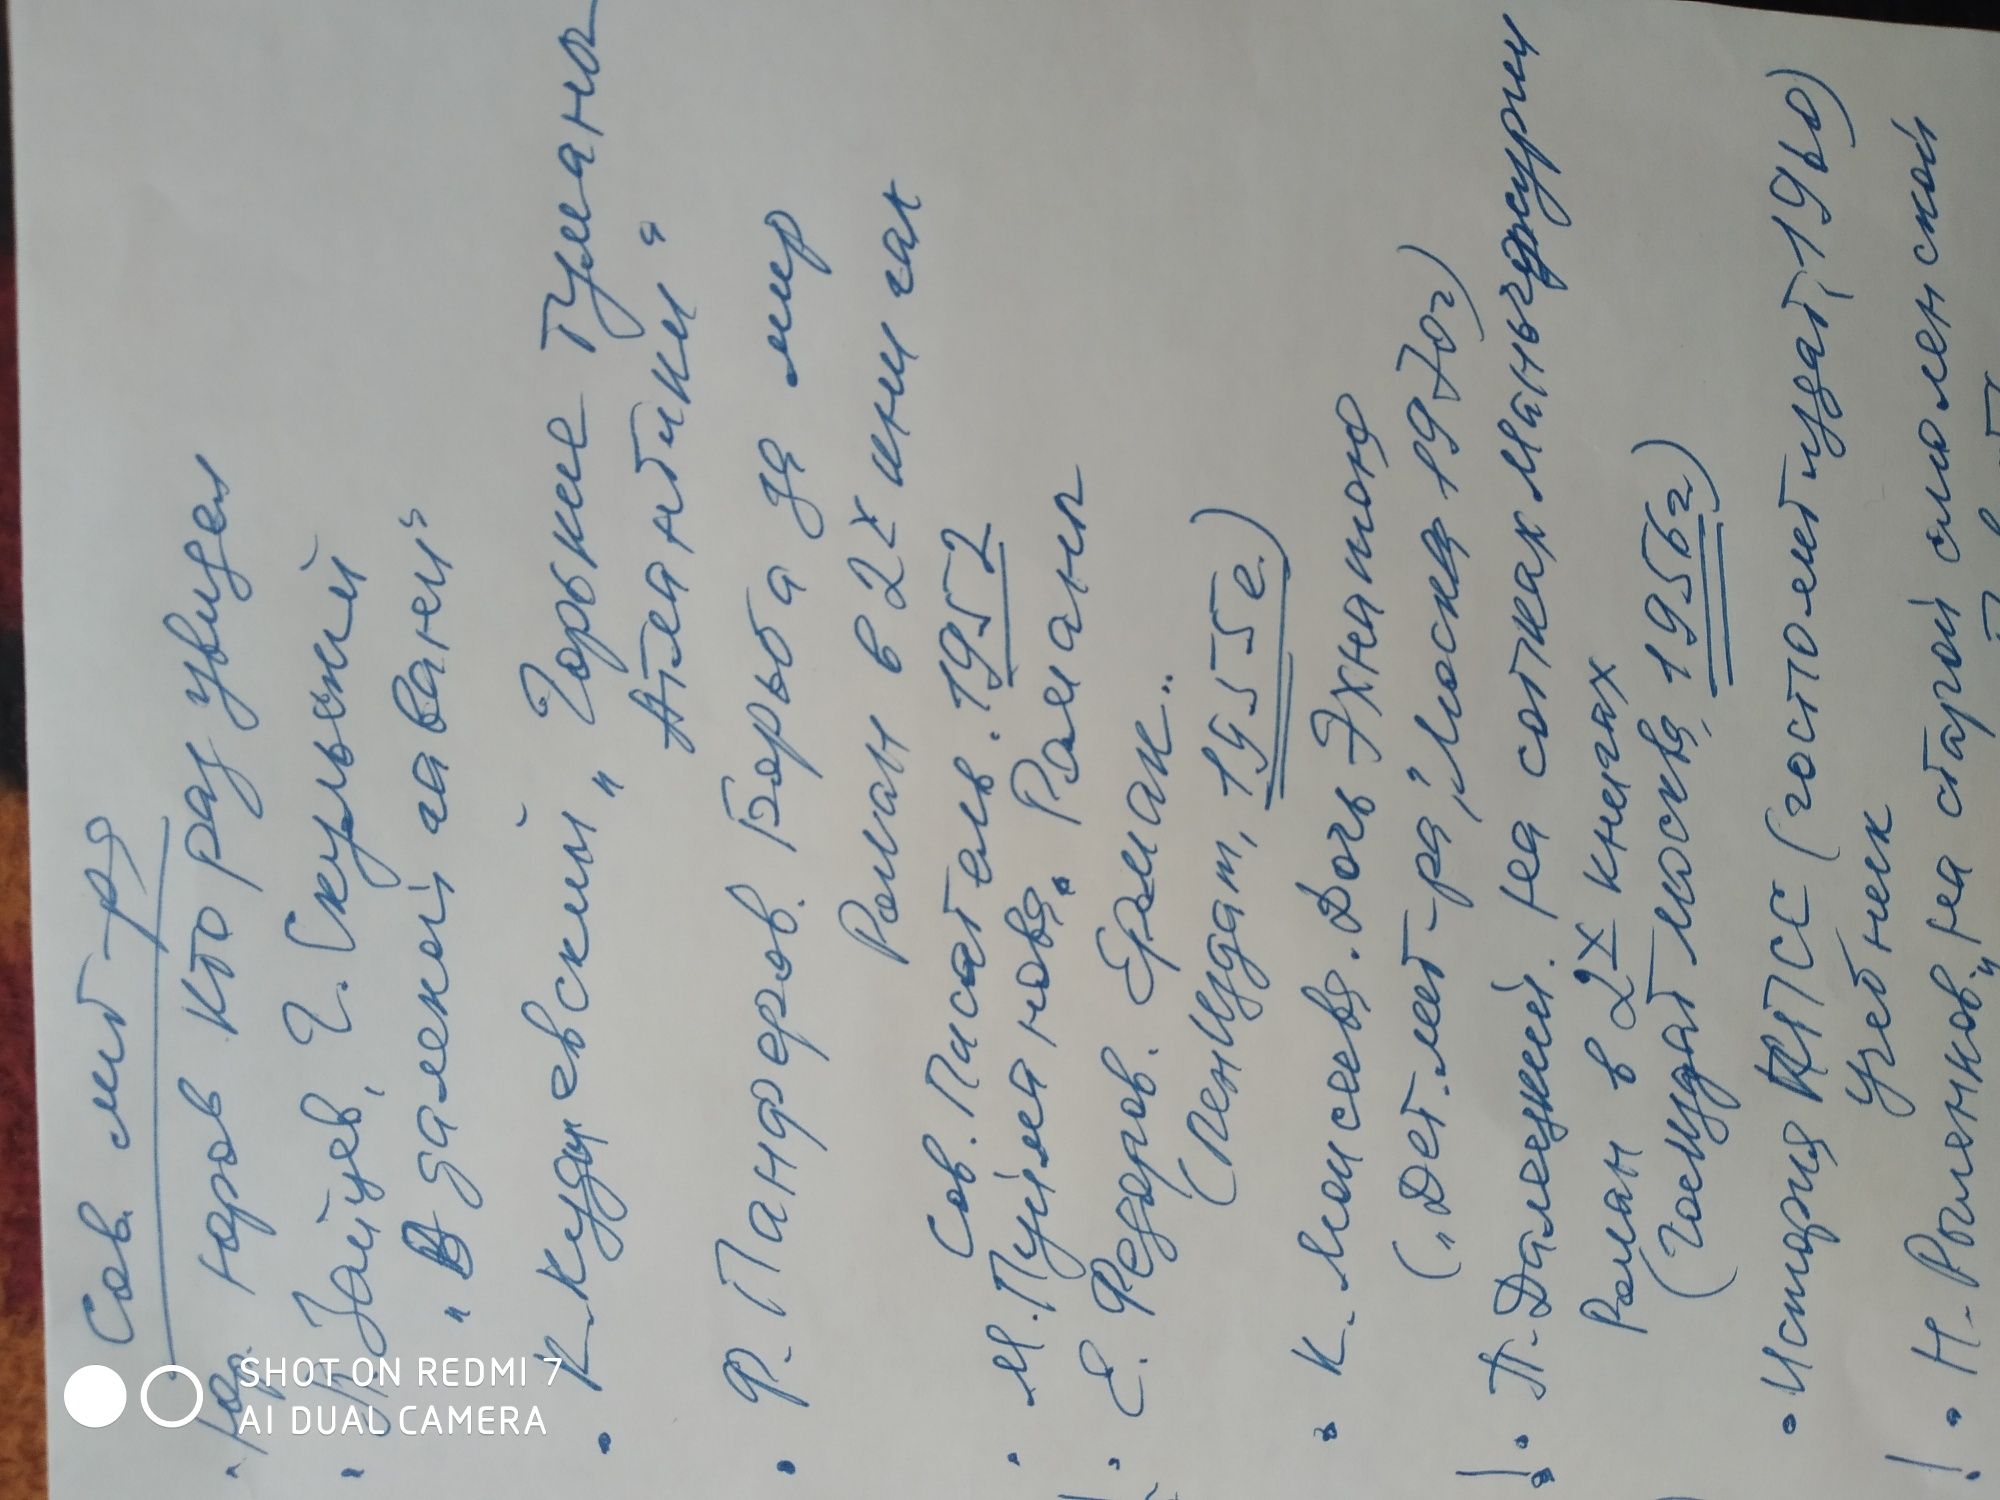 Сов. лит-ра
Юр. Юров Кто раз увидел
Зайцев, Г. Скульский
"В далекой гавани"
• К. Кудиевский "Горькие туманы
Атлантики"
• Ф. Панферов. Борьба за мир
Роман в 2х книгах
Сов. Писатель. 1952
• М. Пуйманова. Романы
• Е. Федоров. Ермак..
(ЛенИздат, 1955г.)
• К. Моисеева. Дочь Эхнатона
("Дет. лит-ра", Москва 1970г)
! • П. Далецкий. На сопках Маньчжурии
Роман в 2х книгах
(Госиздат Москва, 1956г)
• История КПСС (госполитиздат, 1960)
Учебник
! • Н. Рыленков, "На старой смоленской
SHOT ON REDMI 7
AI DUAL CAMERA